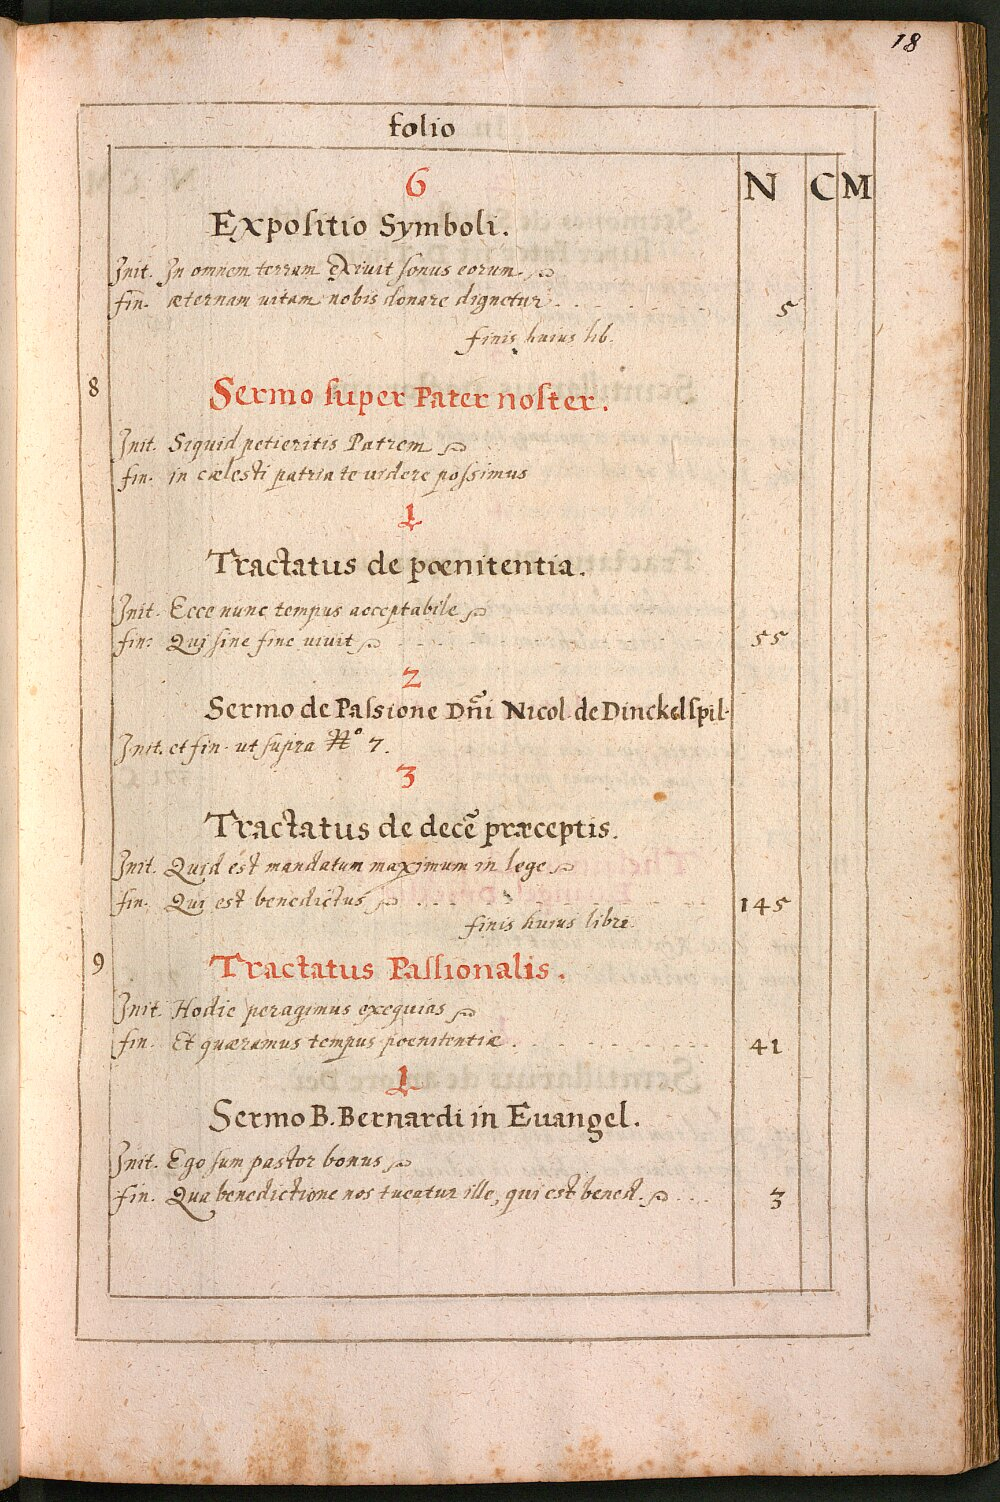 18
folio
N C M
6
Expositio Symboli.
Init. In omnem terram exivit sonus eorum
fin. æternam uitam nobis donare dignetur 5
finis huius lib.
8 Sermo super Pater noster.
Init. Siquid petieritis Patrem
fin. in cælesti patria te uidere possimus
1
Tractatus de pœnitentia.
Init. Ecce nunc tempus acceptabile
fin: Qui sine fine uiuit 55
2
Sermo de Passione Dñi Nicol. de Dinckelspil.
Init. et fin. ut supra No 7.
3
Tractatus de decẽ præceptis.
Init. Quid est mandatum maximum in lege
fin. Qui est benedictus 145
finis huius libri
9 Tractatus Passionalis.
Init. Hodie peragimus exequias
fin. Et quæramus tempus pœnitentiæ 41
1
Sermo B. Bernardi in Euangel.
Init. Ego sum pastor bonus
fin. Qua benedictione nos tueatur ille, qui est bened. 3